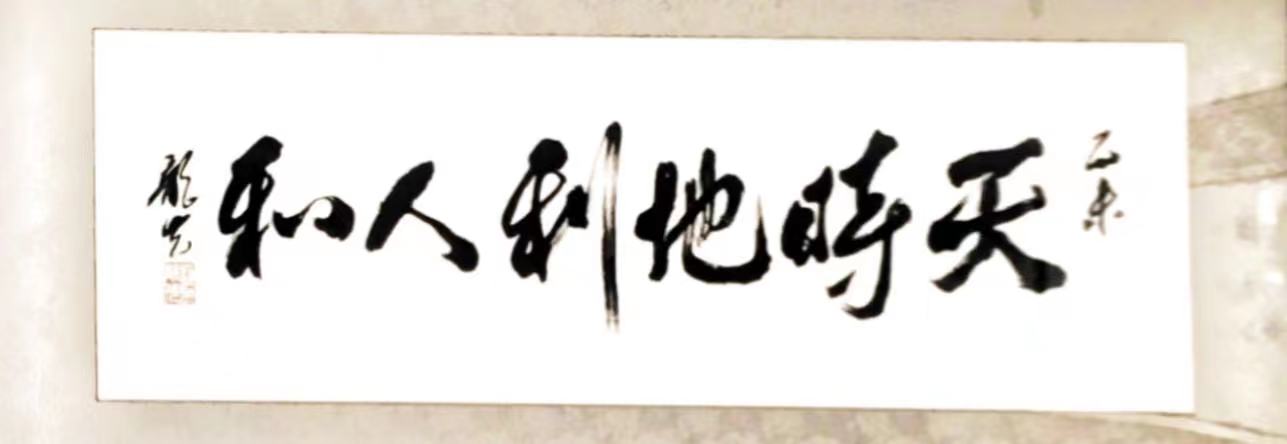 乙未
天時地利人和